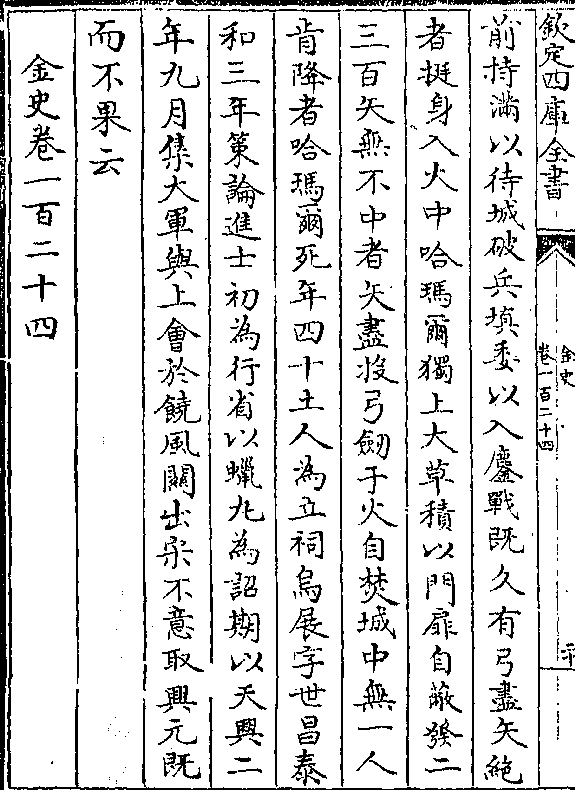 欽定四庫全書
金史
卷一百二十四
前持滿以待城破兵填委以入鏖戰既久有弓盡矢絶
者挺身入火中哈瑪爾獨上大草積以門扉自蔽發二
三百矢無不中者矢盡投弓劔于火自焚城中無一人
肯降者哈瑪爾死年四十土人為立祠烏展字世昌泰
和三年策論進士初為行省以蠟丸為詔期以天興二
年九月集大軍與上會於饒風關出宋不意取興元既
而不果云
金史卷一百二十四